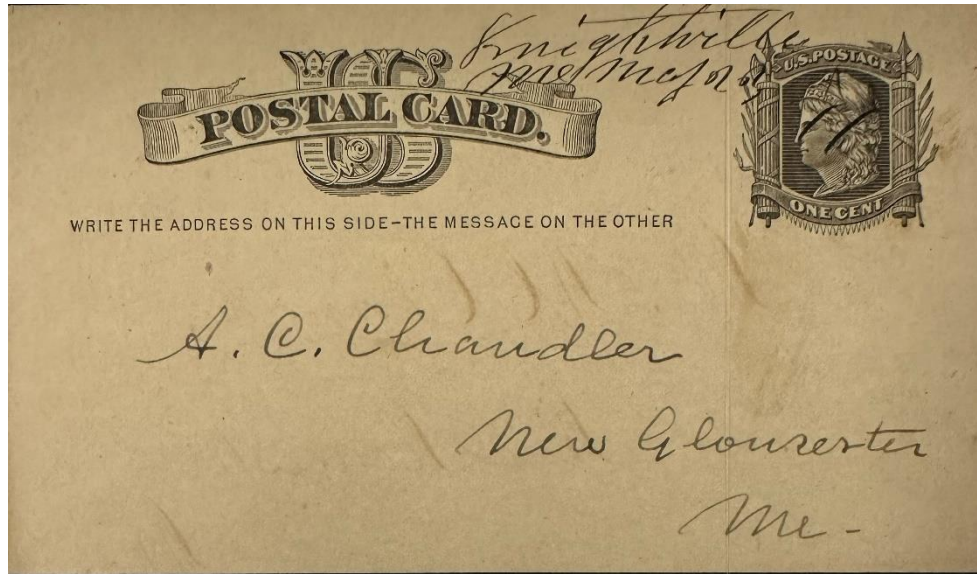 Knightville
Me
US
POSTAL CARD.
U.S. POSTAGE
ONE CENT
WRITE THE ADDRESS ON THIS SIDE-THE MESSAGE ON THE OTHER
A. C. Chandler
New Gloucester
Me-